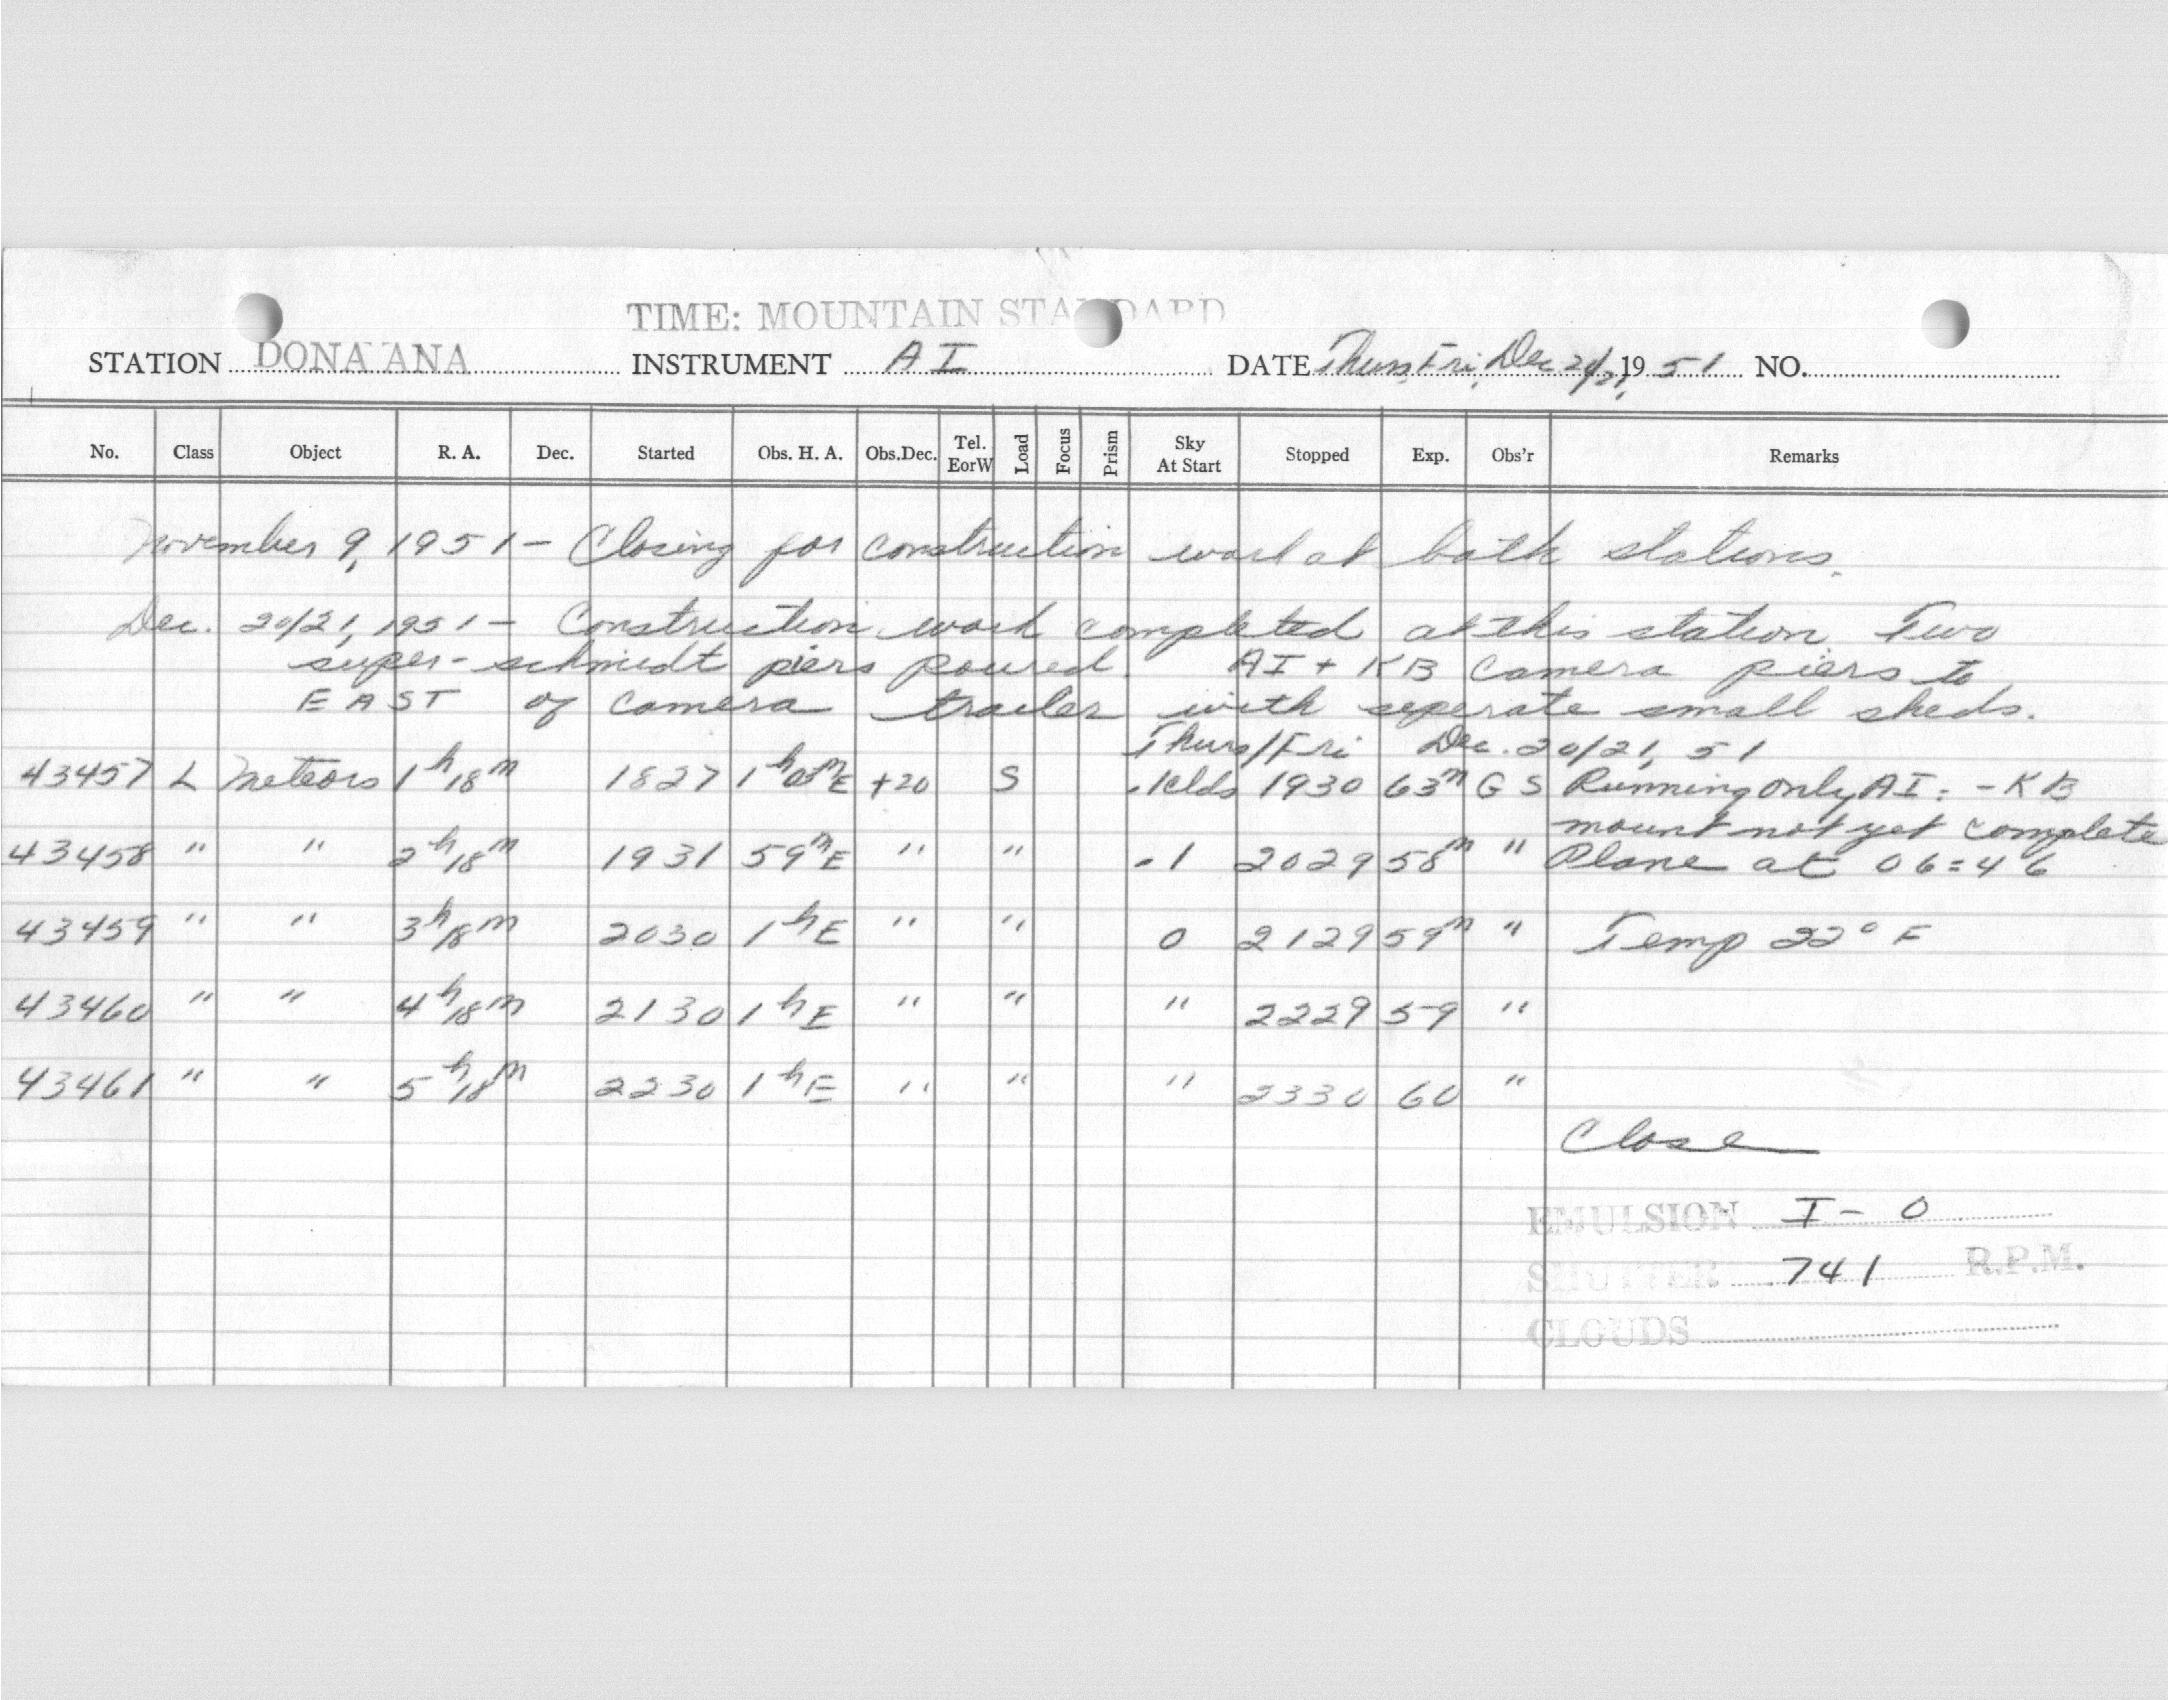 TIME: MOUNTAIN STANDARD
STATION DONA ANA INSTRUMENT AI DATE Thurs, Fri, Dec 20/21, 1951 NO.
No. Class Object R. A. Dec. Started Obs. H. A. Obs.Dec. Tel. EorW Load Focus Prism Sky At Start Stopped Exp. Obs'r Remarks
November 9, 1951 - Closing for construction work at both stations.
Dec. 20/21, 1951 - Construction work completed at this station. Two
super-schmidt piers poured. AI + KB Camera piers to
EAST of camera trailer with seperate small sheds.
Thurs/Fri Dec. 20/21, 51
43457 L Meteors 1h 18m 1827 1h 03mE +20 S .1clds 1930 63m G S Running only AI: - KB
mount not yet complete
43458 " " 2h 18m 1931 59mE " " .1 2029 58m " Plane at 06:46
43459 " " 3h 18m 2030 1hE " " 0 2129 59m " Temp 22° F
43460 " " 4h 18m 2130 1hE " " " 2229 59 "
43461 " " 5h 18m 2230 1hE " " " 2330 60 "
Close
EMULSION I-0
SHUTTER 741 R.P.M.
CLOUDS